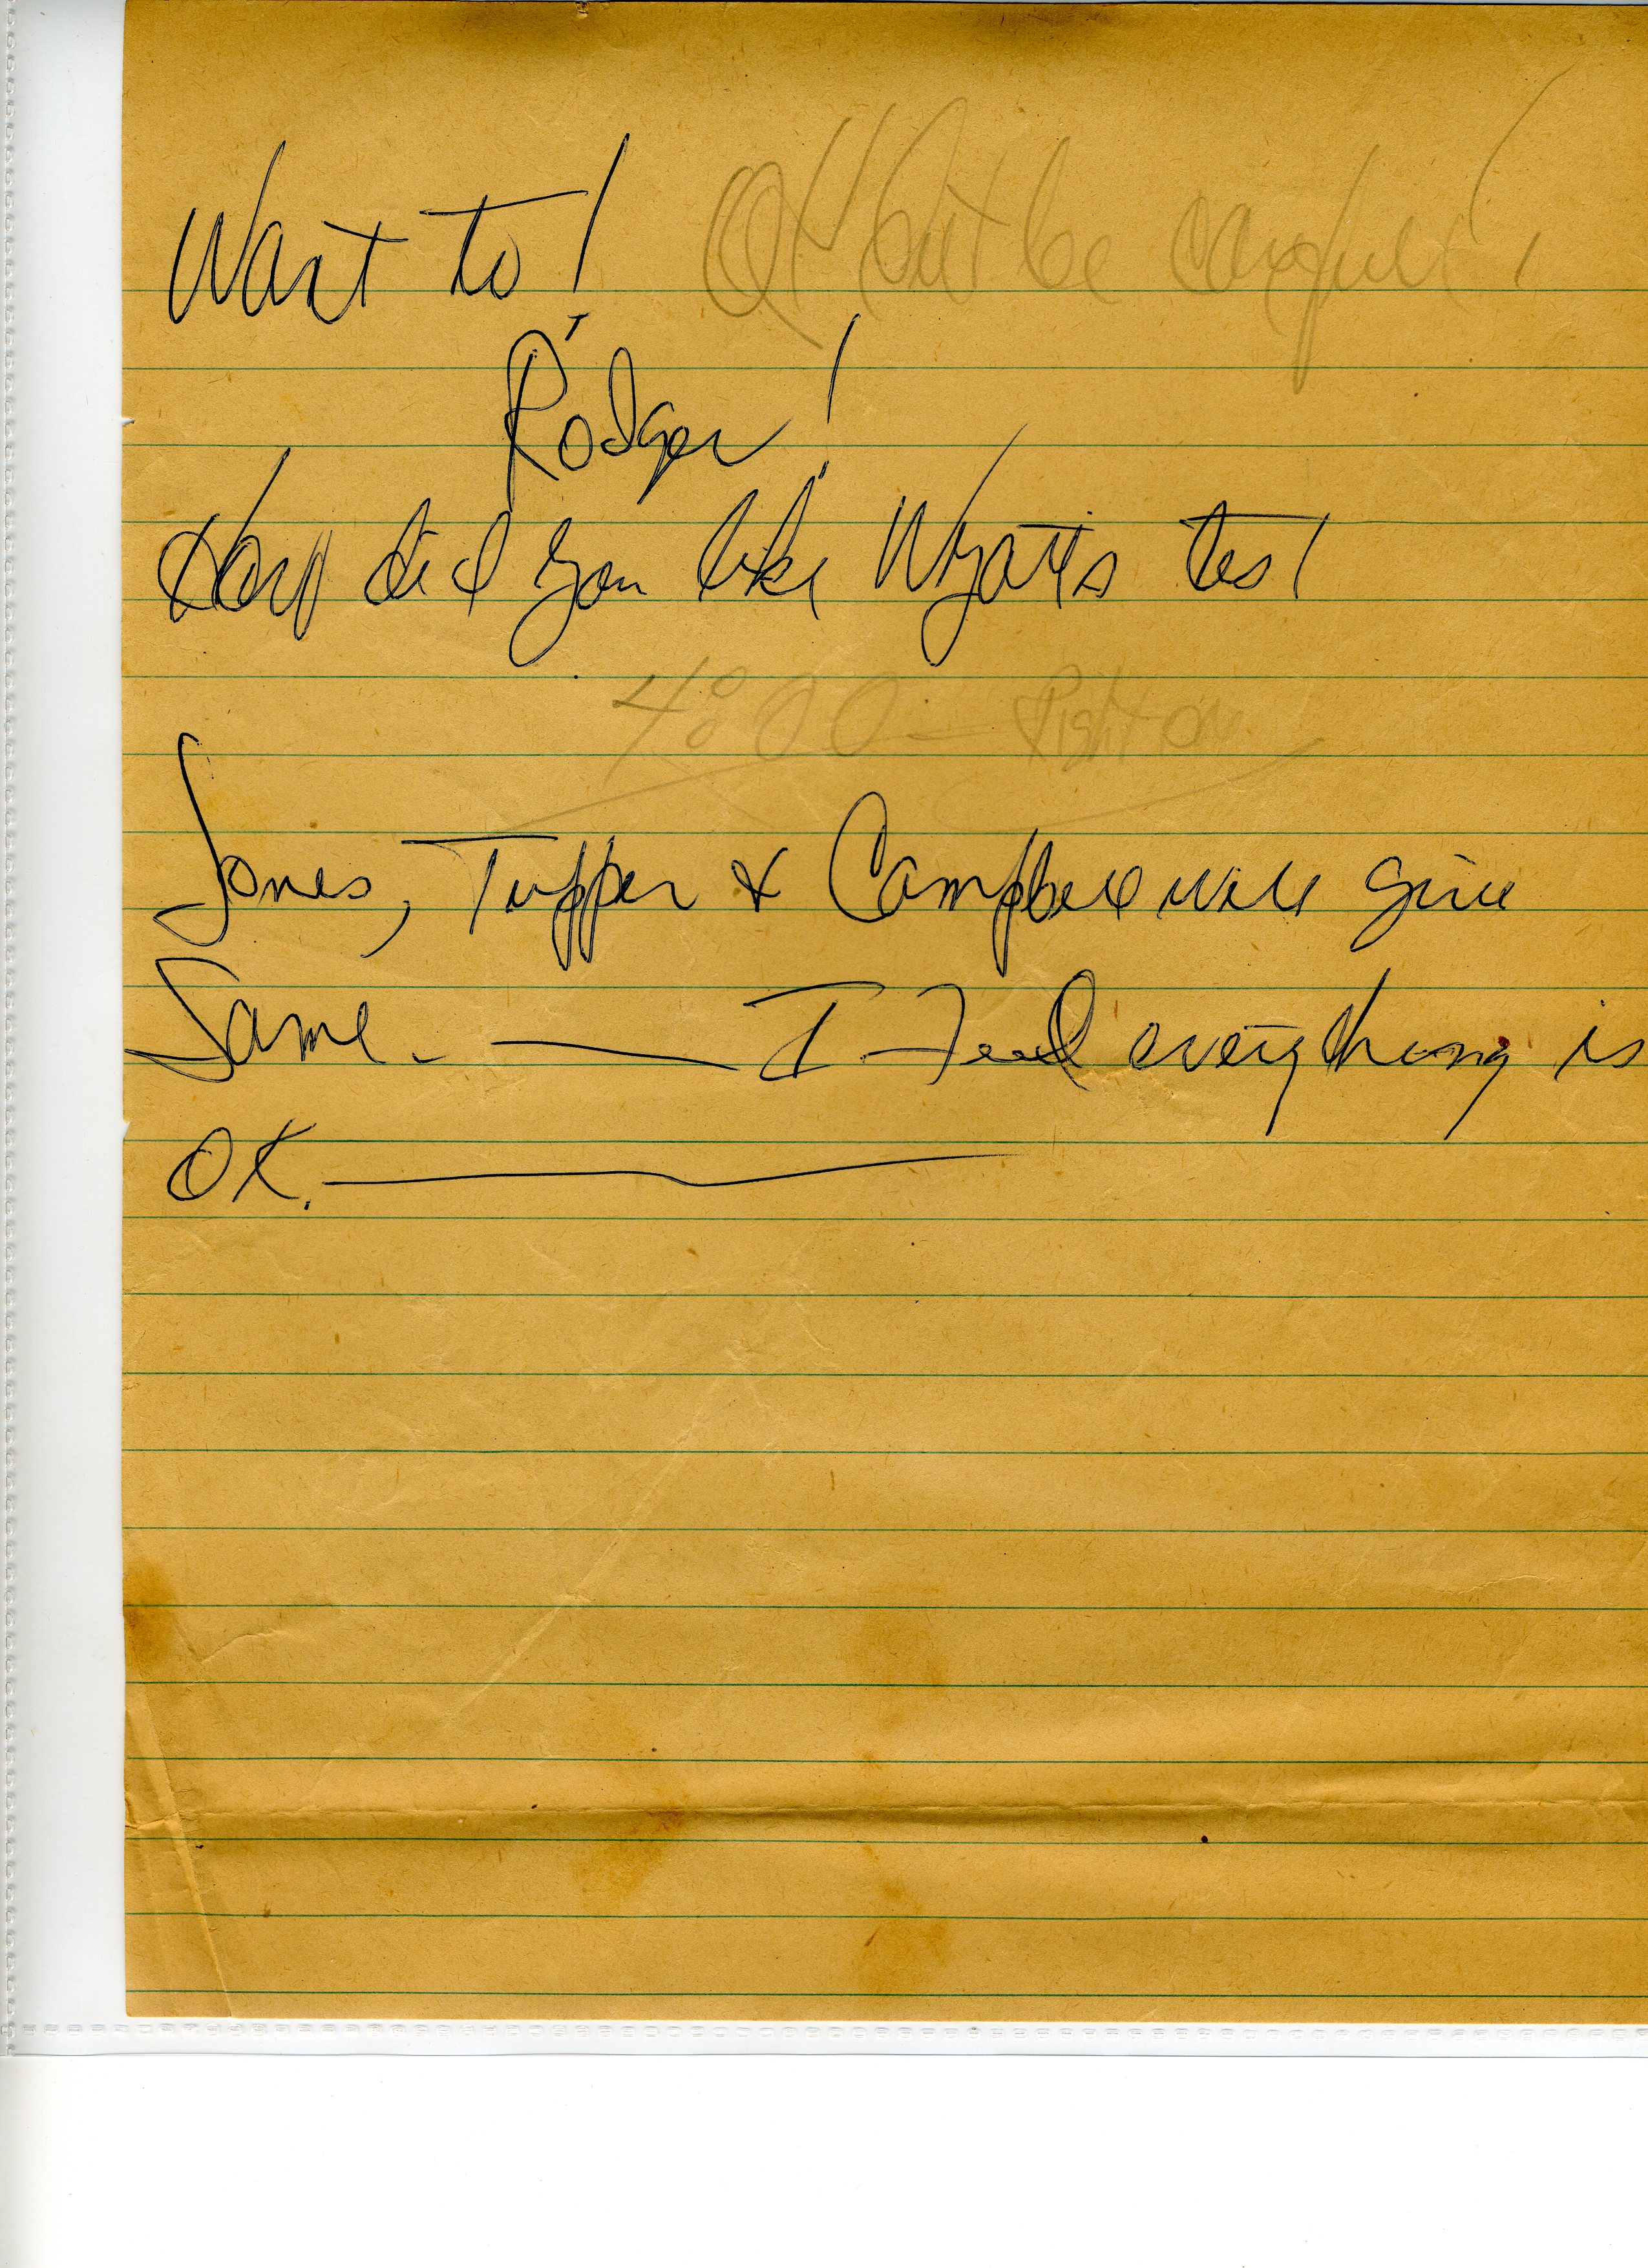 Want to! OK but be careful!
Rodger!
How did you like Wyatts test
4:00 - Right on
Jones, Tupper & Campbell will give
Same. — I Feel everything is
OK.